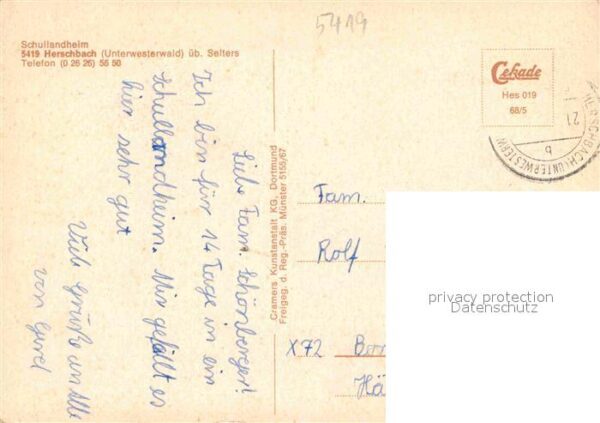 5419
Schullandheim
5419 Herschbach (Unterwesterwald) üb. Selters
Telefon (0 26 26) 55 50
Cekade
Hes 019
68/5
HERSCHBACH (UNTERWESTERW
21
b
Liebe Fam. Schönberger!
Ich bin für 14 Tage in ein
Schullandheim. Mir gefällt es
hier sehr gut
Viele Grüße an Alle
von
Cramers Kunstanstalt KG, Dortmund
Freigeg. d. Reg.-Präs. Münster 5155/67
Fam.
Rolf
X72
privacy protection
Datenschutz